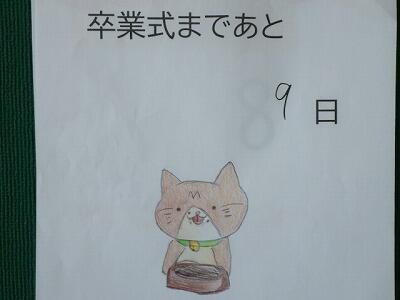 卒業式まであと
9日